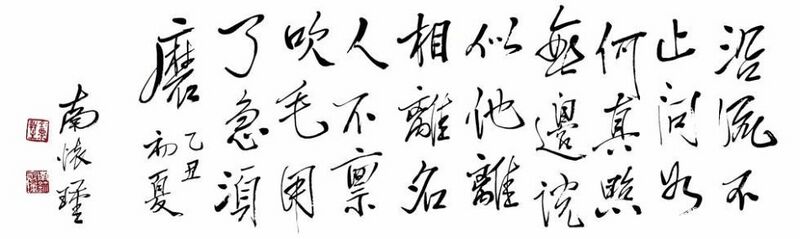 沿流不
止問如
何真照
無邊説
似他離
相離名
人不禀
吹毛用
了急須
磨
乙丑
初夏
南懷瑾